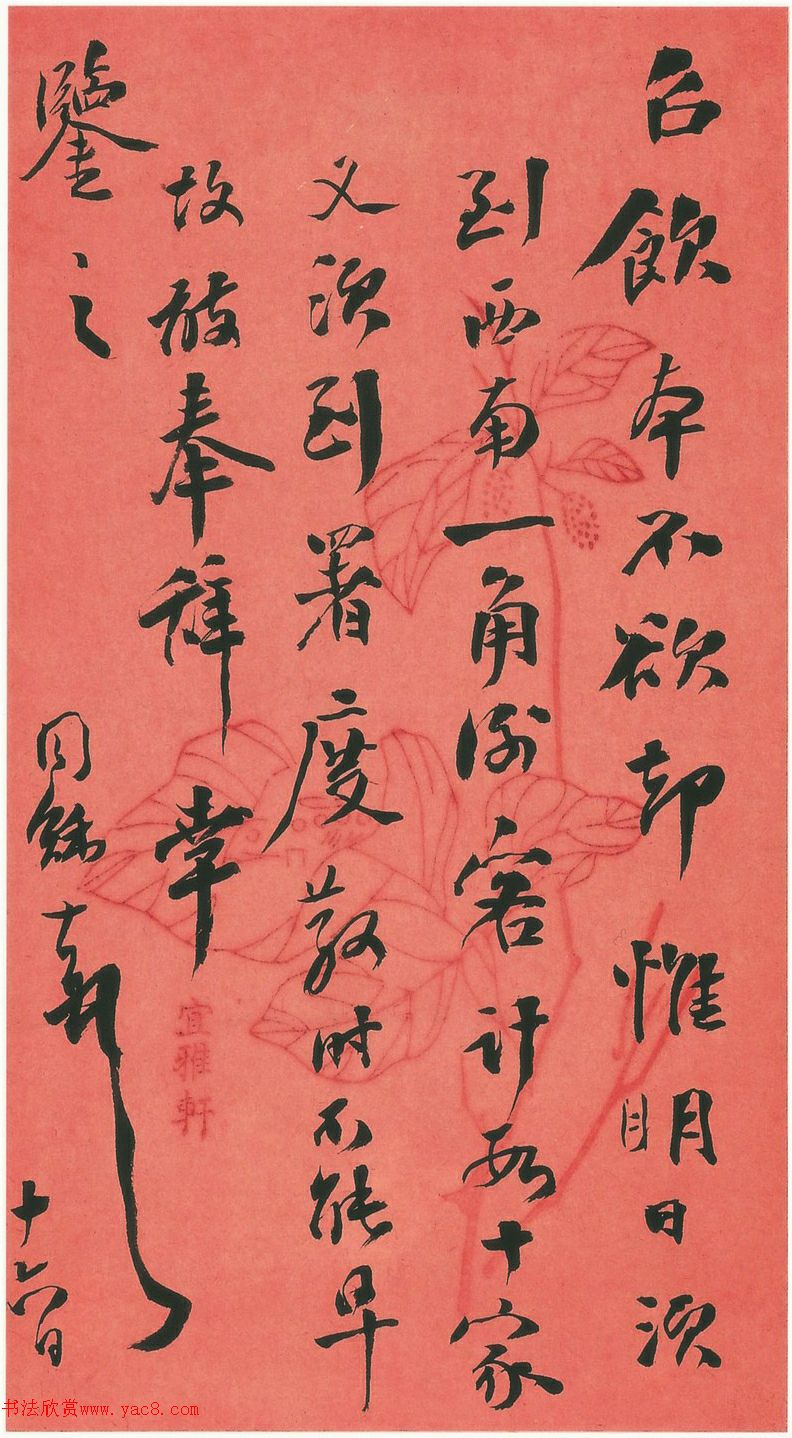 召飲本不欲却惟明日須
到西南一角謝客計數十家
又須到署度散時不能早
故敢奉辭幸
鑒之
同龢頓首
十六日
宜雅軒
书法欣赏www.yac8.com